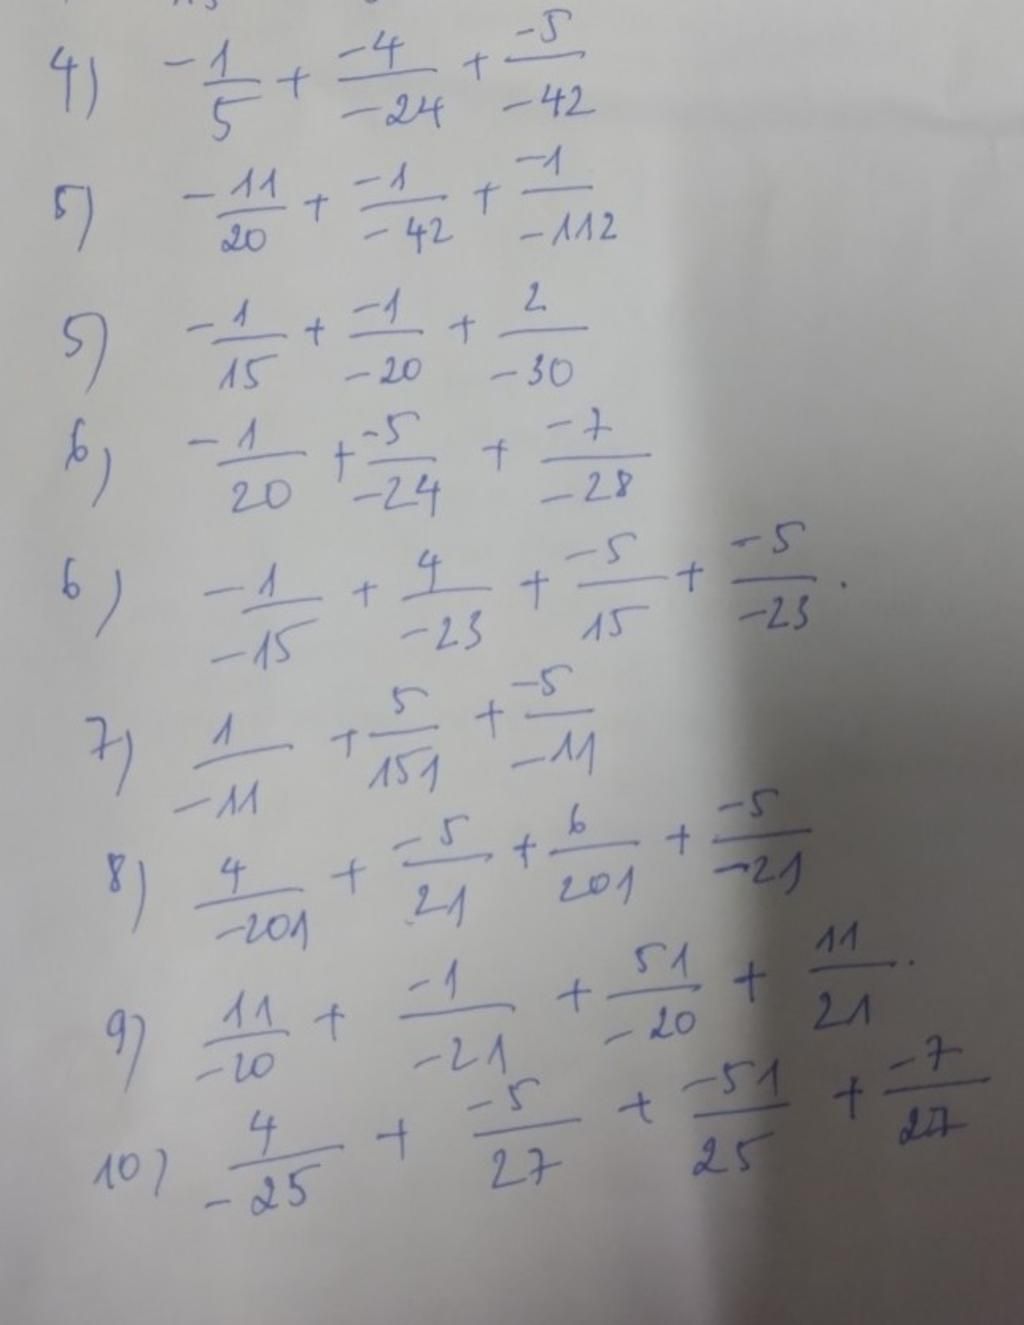 4) -1/5 + -4/-24 + -5/-42
5) -11/20 + -1/-42 + -1/-112
5) -1/15 + -1/-20 + 2/-30
6) -1/20 + -5/-24 + -7/-28
6) -1/-15 + 4/-23 + -5/15 + -5/-23.
7) 1/-11 + 5/151 + -5/-11
8) 4/-201 + -5/21 + 6/201 + -5/-21
9) 11/-20 + -1/-21 + 51/-20 + 11/21.
10) 4/-25 + -5/27 + -51/25 + -7/27